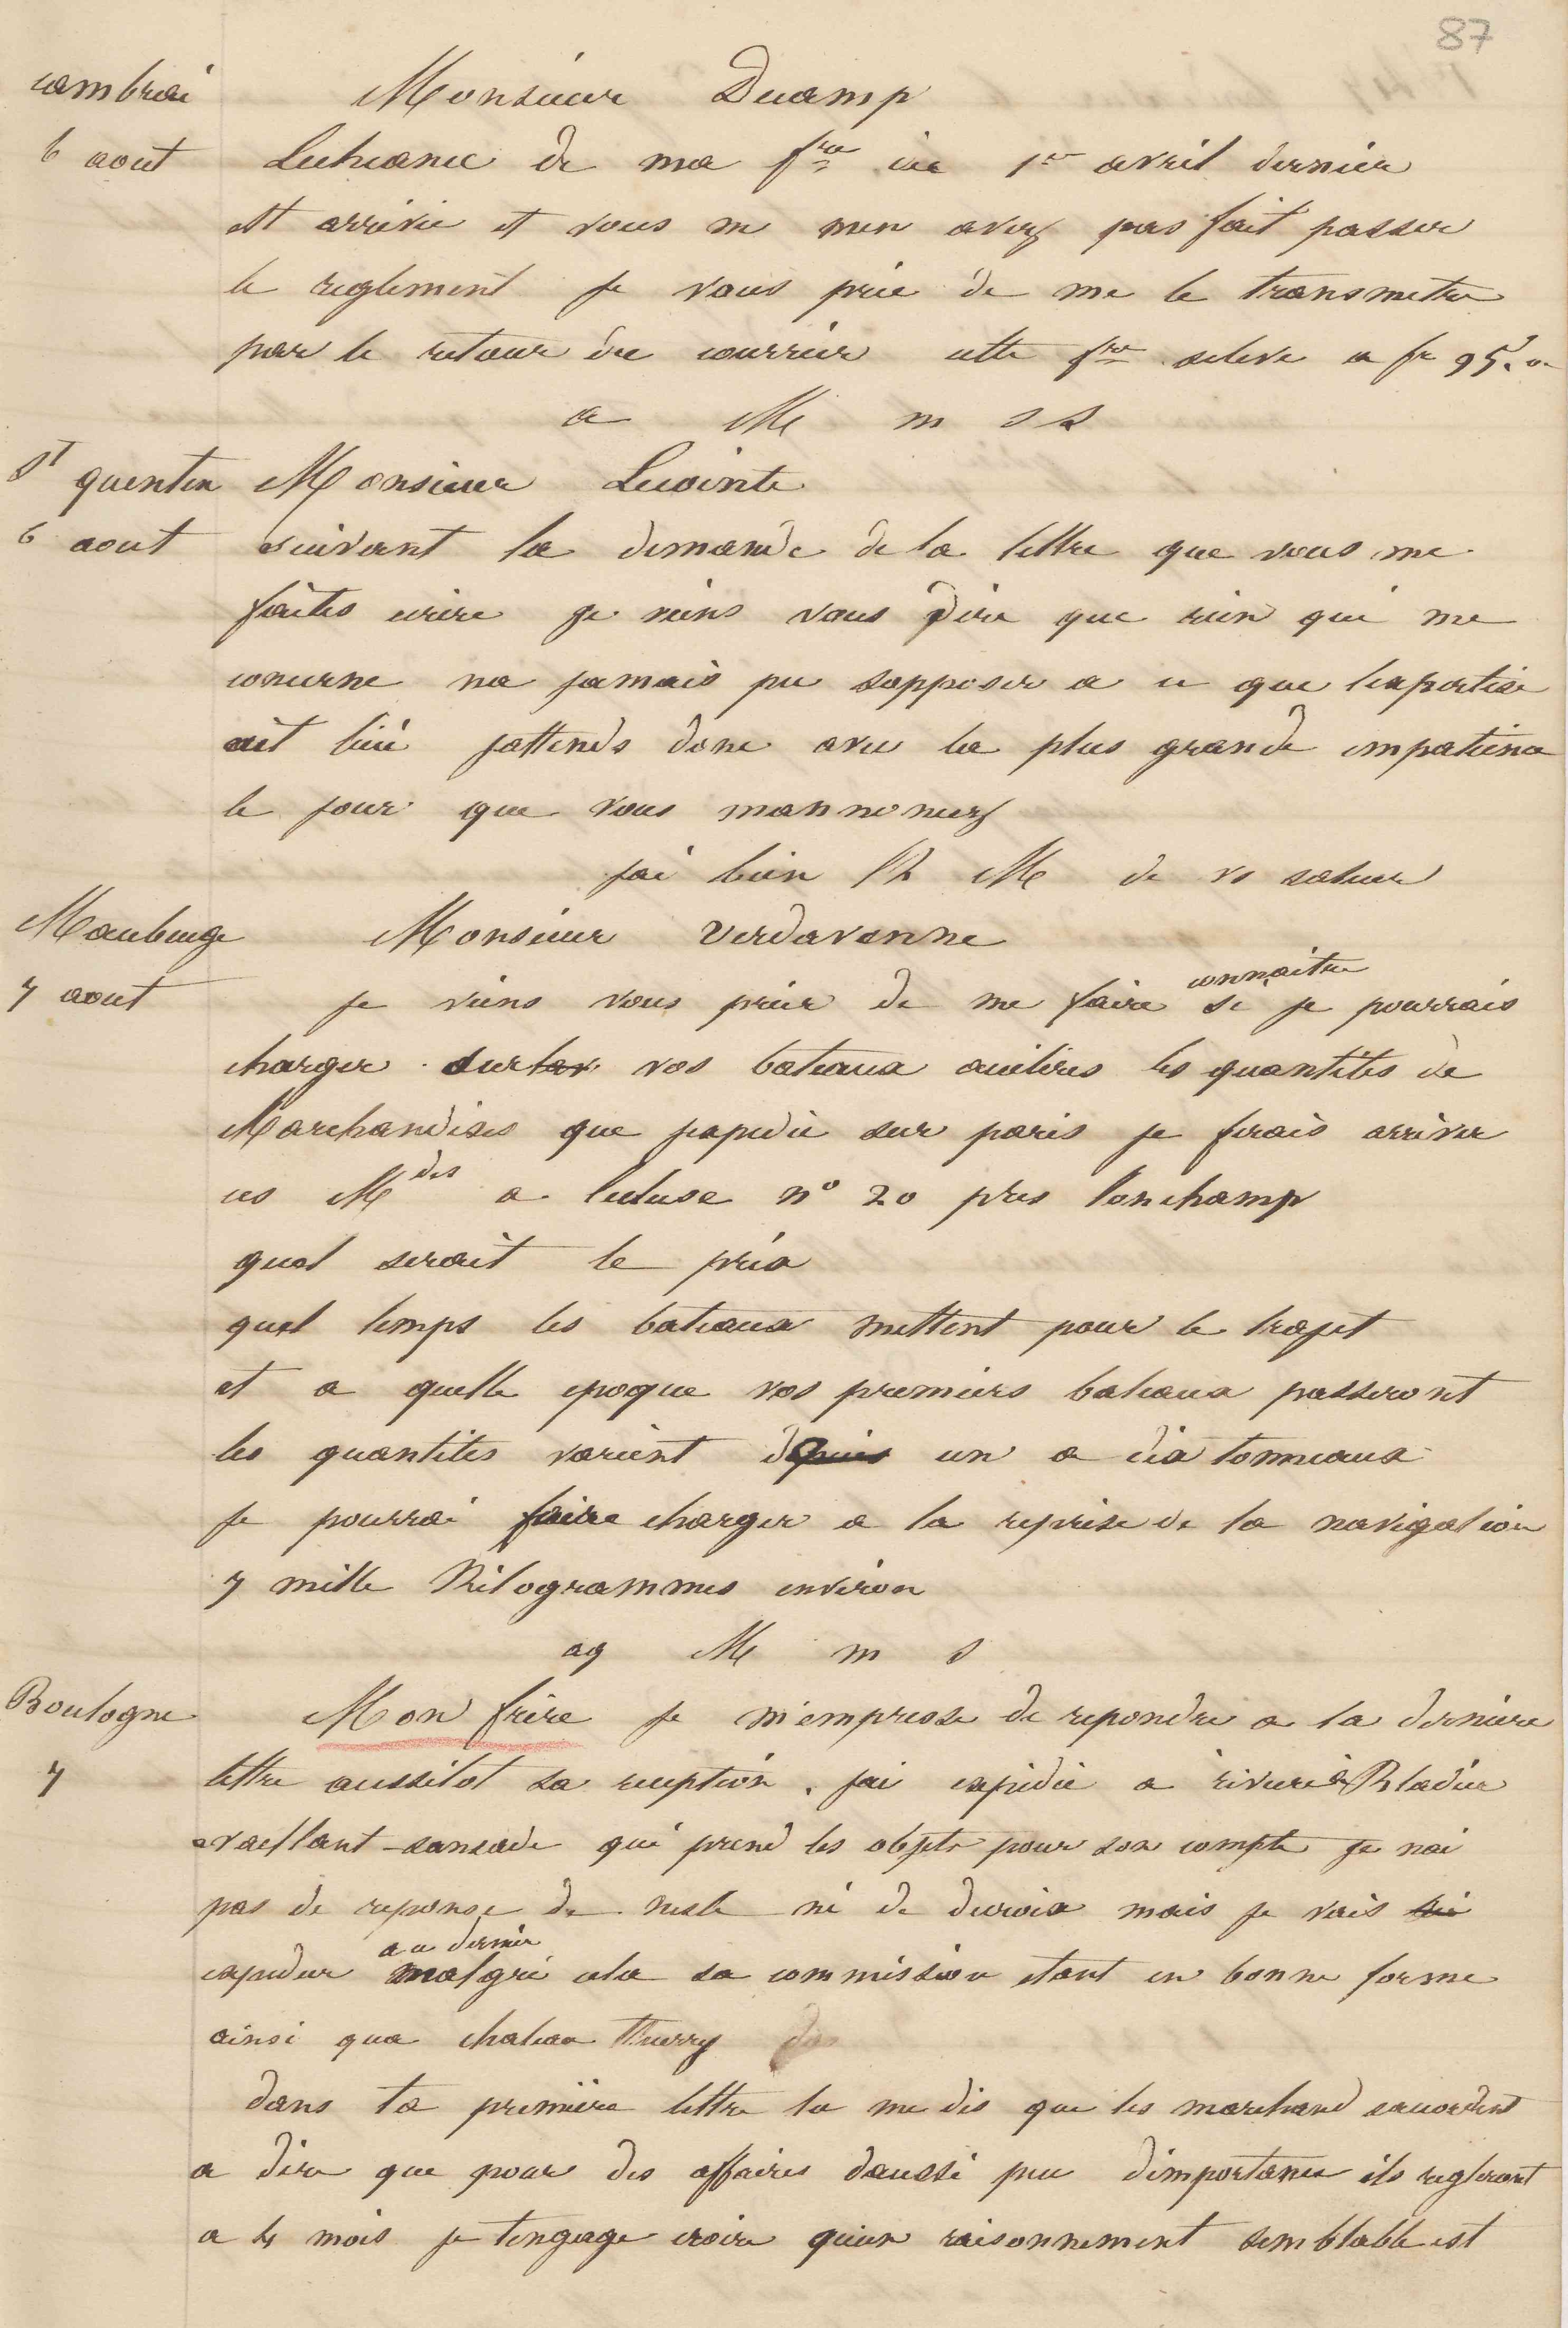 87
cambrai Monsieur Ducamp
6 aout Lecheance de ma fre du 1er avril dernier
est arrivee et vous ne men avez pas fait passer
le reglement je vous prie de me le transmetre
par le retour du courrier cette fre seleve a fr 95.
a M m s s
St quentin Monsieur Lecointe
6 aout suivant la demande de la lettre que vous me
faites ecrire je viens vous dire que rien qui me
concerne na jamais pu sopposer a ce que lexpertise
ait lieu jattends donc avec la plus grande impatience
le jour que vous mannoncez
jai bien lh M de vs saluer
Maubeuge Monsieur Verdavenne
7 aout je viens vous prier de me faire connaitre si je pourrais
charger sur vos bateaux acieliers les quantites de
Marchandises que jexpedie sur paris je ferais arriver
ces Mdes a lecluse no 20 pres lonchamp
quel serait le prix
quel temps les bateaux mettent pour le trajet
et a quelle epoque vos premiers bateaux passeront
les quantites varient depuis un a dix tonneaux
je pourrai faire charger a la reprise de la navigation
7 mille Kilogrammes environ
ag M m s
Boulogne Mon frère je m'empresse de repondre a la derniere
7 lettre aussitot sa reception. jai expedie a
qui prend les objets pour son compte je nai
pas de reponse de nesle ni de ducroix mais je vais
expedier au dernier malgré cela sa commission etant en bonne forme
ainsi qua chateau thierry
dans ta premiière lettre tu me dis que les marchand saccordent
a dire que pour des affaires daussi peu dimportance ils regleront
a 4 mois je tengage croire quun raisonnement semblable est